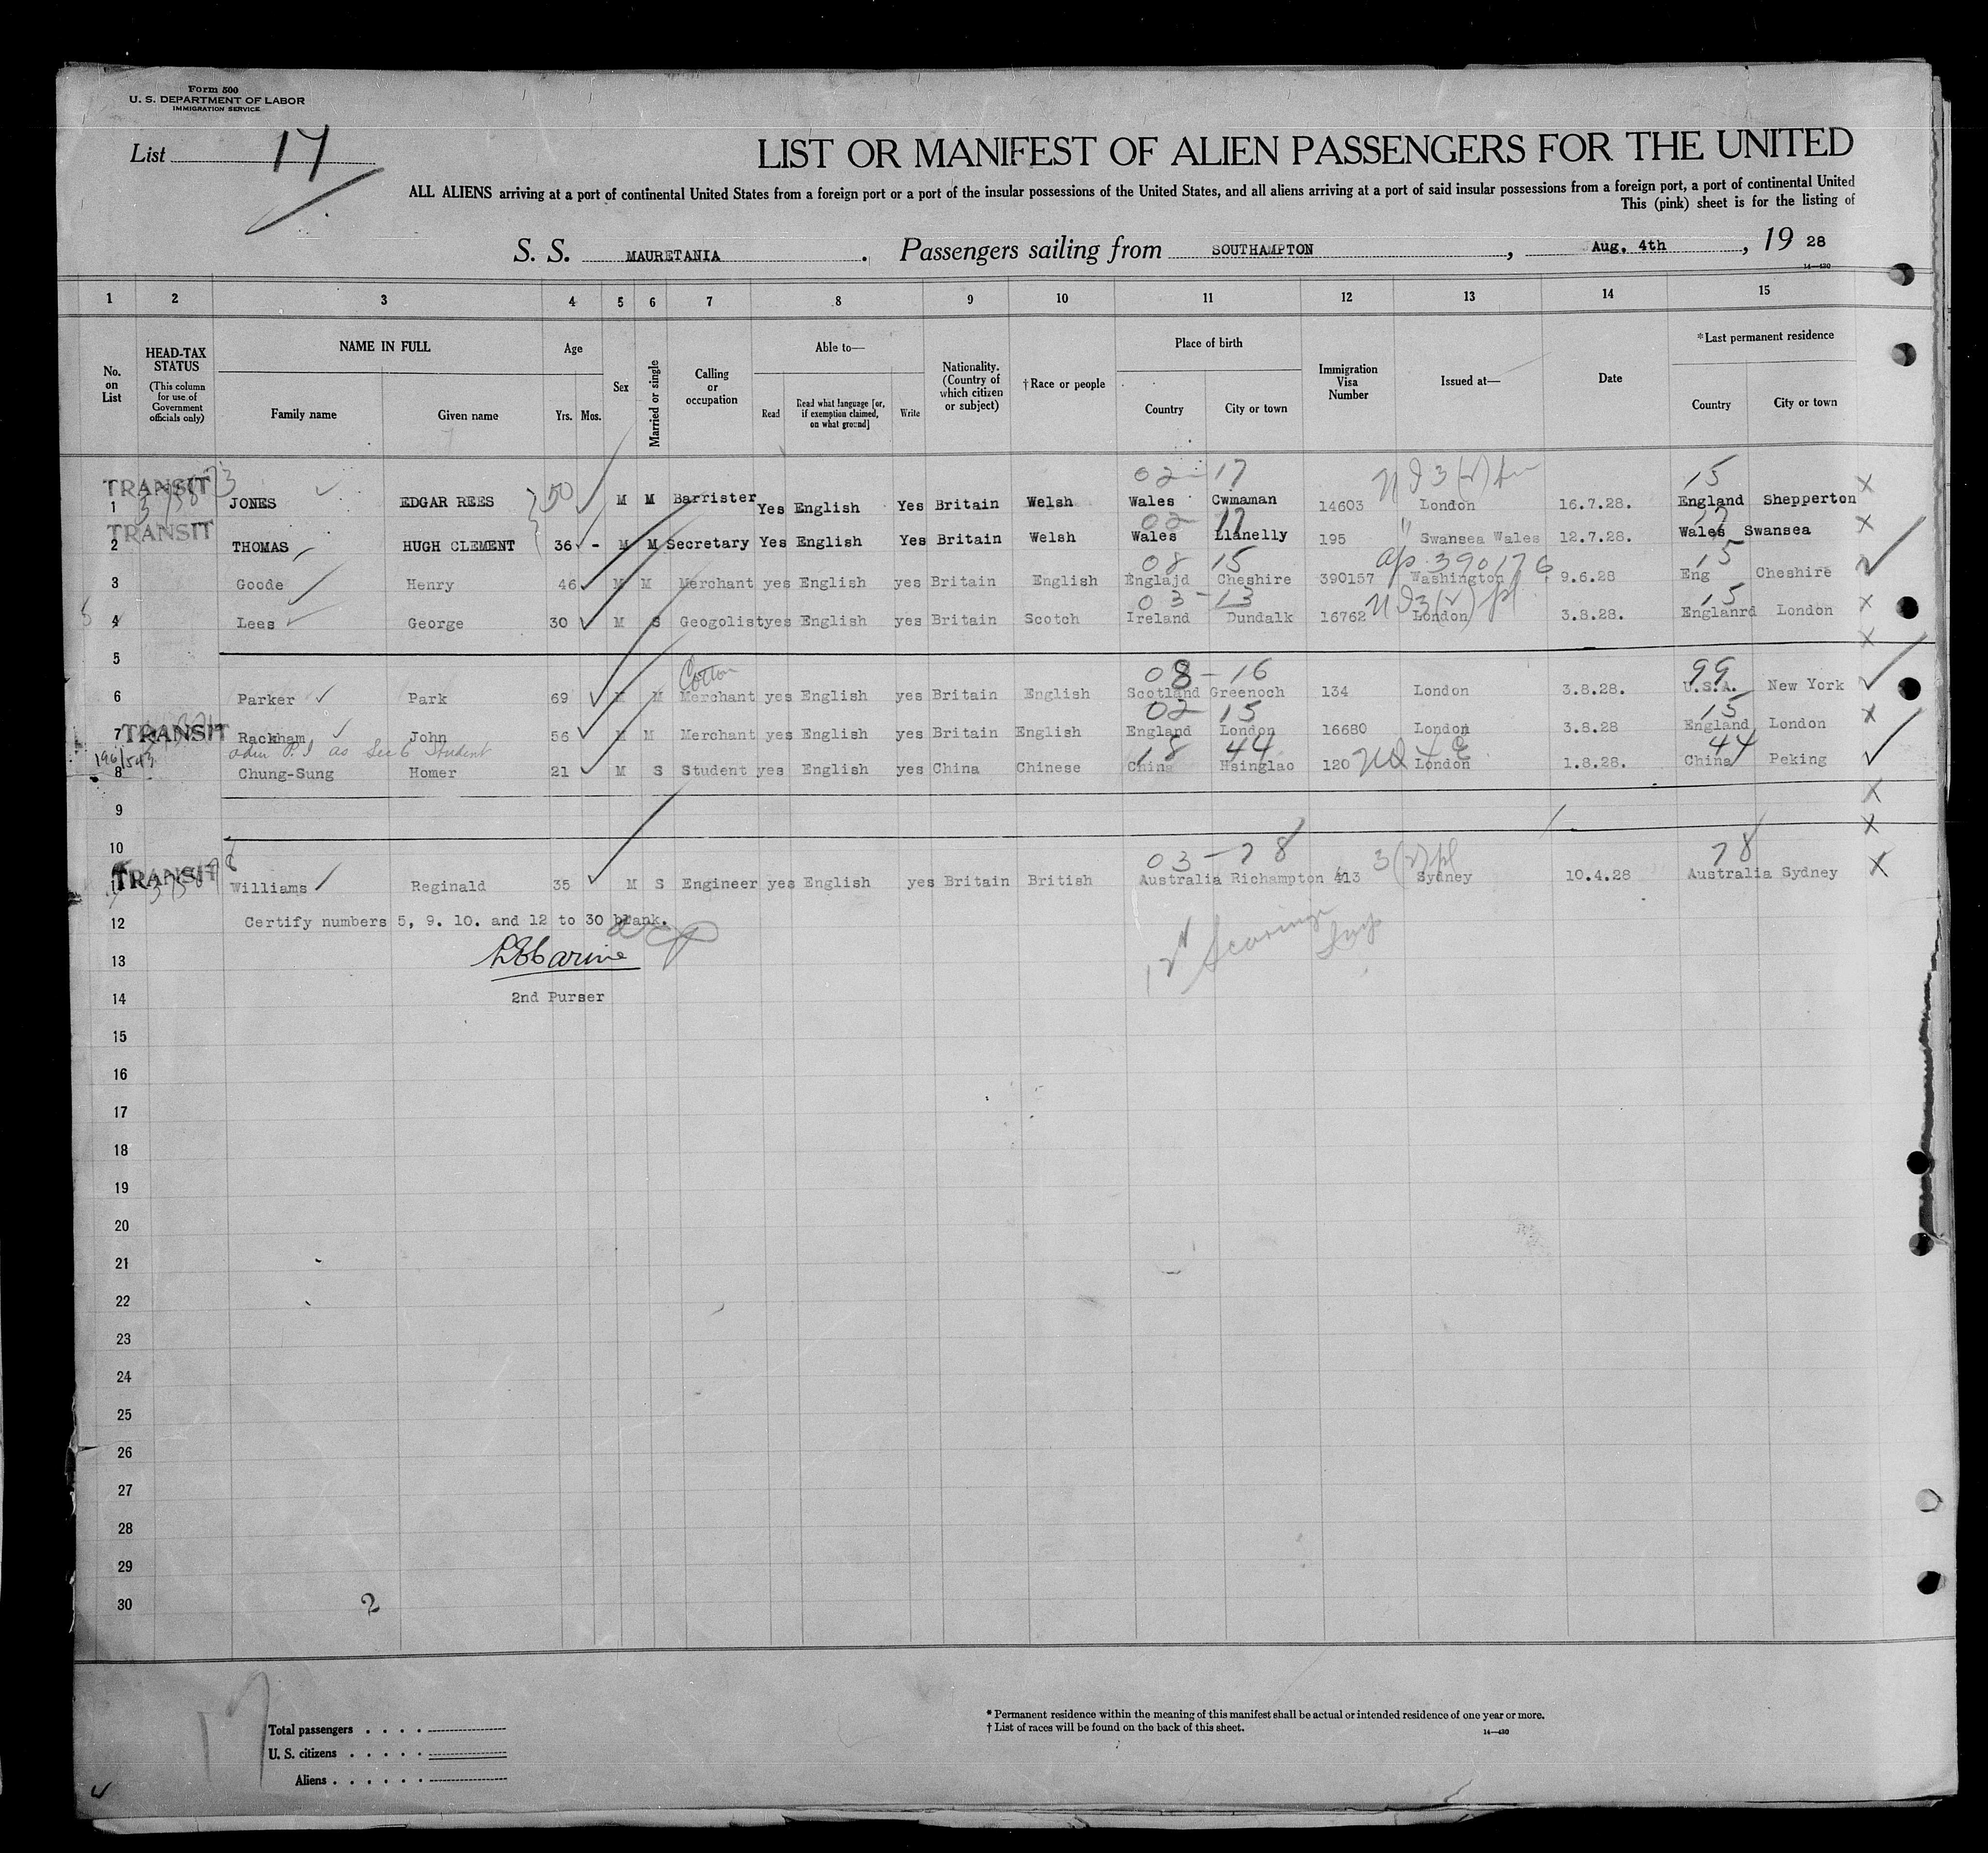 Form 500
U. S. DEPARTMENT OF LABOR
IMMIGRATION SERVICE
List 17
LIST OR MANIFEST OF ALIEN PASSENGERS FOR THE UNITED
ALL ALIENS arriving at a port of continental United States from a foreign port or a port of the insular possessions of the United States, and all aliens arriving at a port of said insular possessions from a foreign port, a port of continental United
This (pink) sheet is for the listing of
S. S. MAURETANIA . Passengers sailing from SOUTHAMPTON , Aug. 4th , 19 28
14—430
1 2 3 4 5 6 7 8 9 10 11 12 13 14 15
No. on List
HEAD-TAX STATUS (This column for use of Government officials only)
NAME IN FULL
Family name Given name
Age
Yrs. Mos.
Sex
Married or single
Calling or occupation
Able to—
Read
Read what language [or, if exemption claimed, on what ground]
Write
Nationality. (Country of which citizen or subject)
† Race or people
Place of birth
Country City or town
Immigration Visa Number
Issued at—
Date
* Last permanent residence
Country City or town
02 - 17 15
TRANSIT 1 JONES EDGAR REES 50 M M Barrister Yes English Yes Britain Welsh Wales Cwmaman 14603 London 16.7.28. England Shepperton X
02 17 17
TRANSIT 2 THOMAS HUGH CLEMENT 36 - M M Secretary Yes English Yes Britain Welsh Wales Llanelly 195 " Swansea Wales 12.7.28. Wales Swansea X
08 15 390176 15
3 Goode Henry 46 M M Merchant yes English yes Britain English Englajd Cheshire 390157 Washington 9.6.28 Eng Cheshire
03 - 13 15
4 Lees George 30 M S Geogolist yes English yes Britain Scotch Ireland Dundalk 16762 London 3.8.28. Englanrd London X
5 X
Cotton 08 - 16 99
6 Parker Park 69 M M Merchant yes English yes Britain English Scotland Greenoch 134 London 3.8.28. U.S.A. New York
02 15 15
TRANSIT 7 Rackham John 56 M M Merchant yes English yes Britain English England London 16680 London 3.8.28 England London X
adm P.I as Sec 6 Student 18 44 44
8 Chung-Sung Homer 21 M S Student yes English yes China Chinese China Hsinglao 120 London 1.8.28. China Peking
9 X
10 X
03 - 78 78
TRANSIT Williams Reginald 35 M S Engineer yes English yes Britain British Australia Richampton 413 Sydney 10.4.28 Australia Sydney X
12 Certify numbers 5, 9. 10. and 12 to 30 blank.
13
14 2nd Purser
15
16
17
18
19
20
21
22
23
24
25
26
27
28
29
30
2
17
Total passengers
U. S. citizens
Aliens
* Permanent residence within the meaning of this manifest shall be actual or intended residence of one year or more.
† List of races will be found on the back of this sheet.
14—430